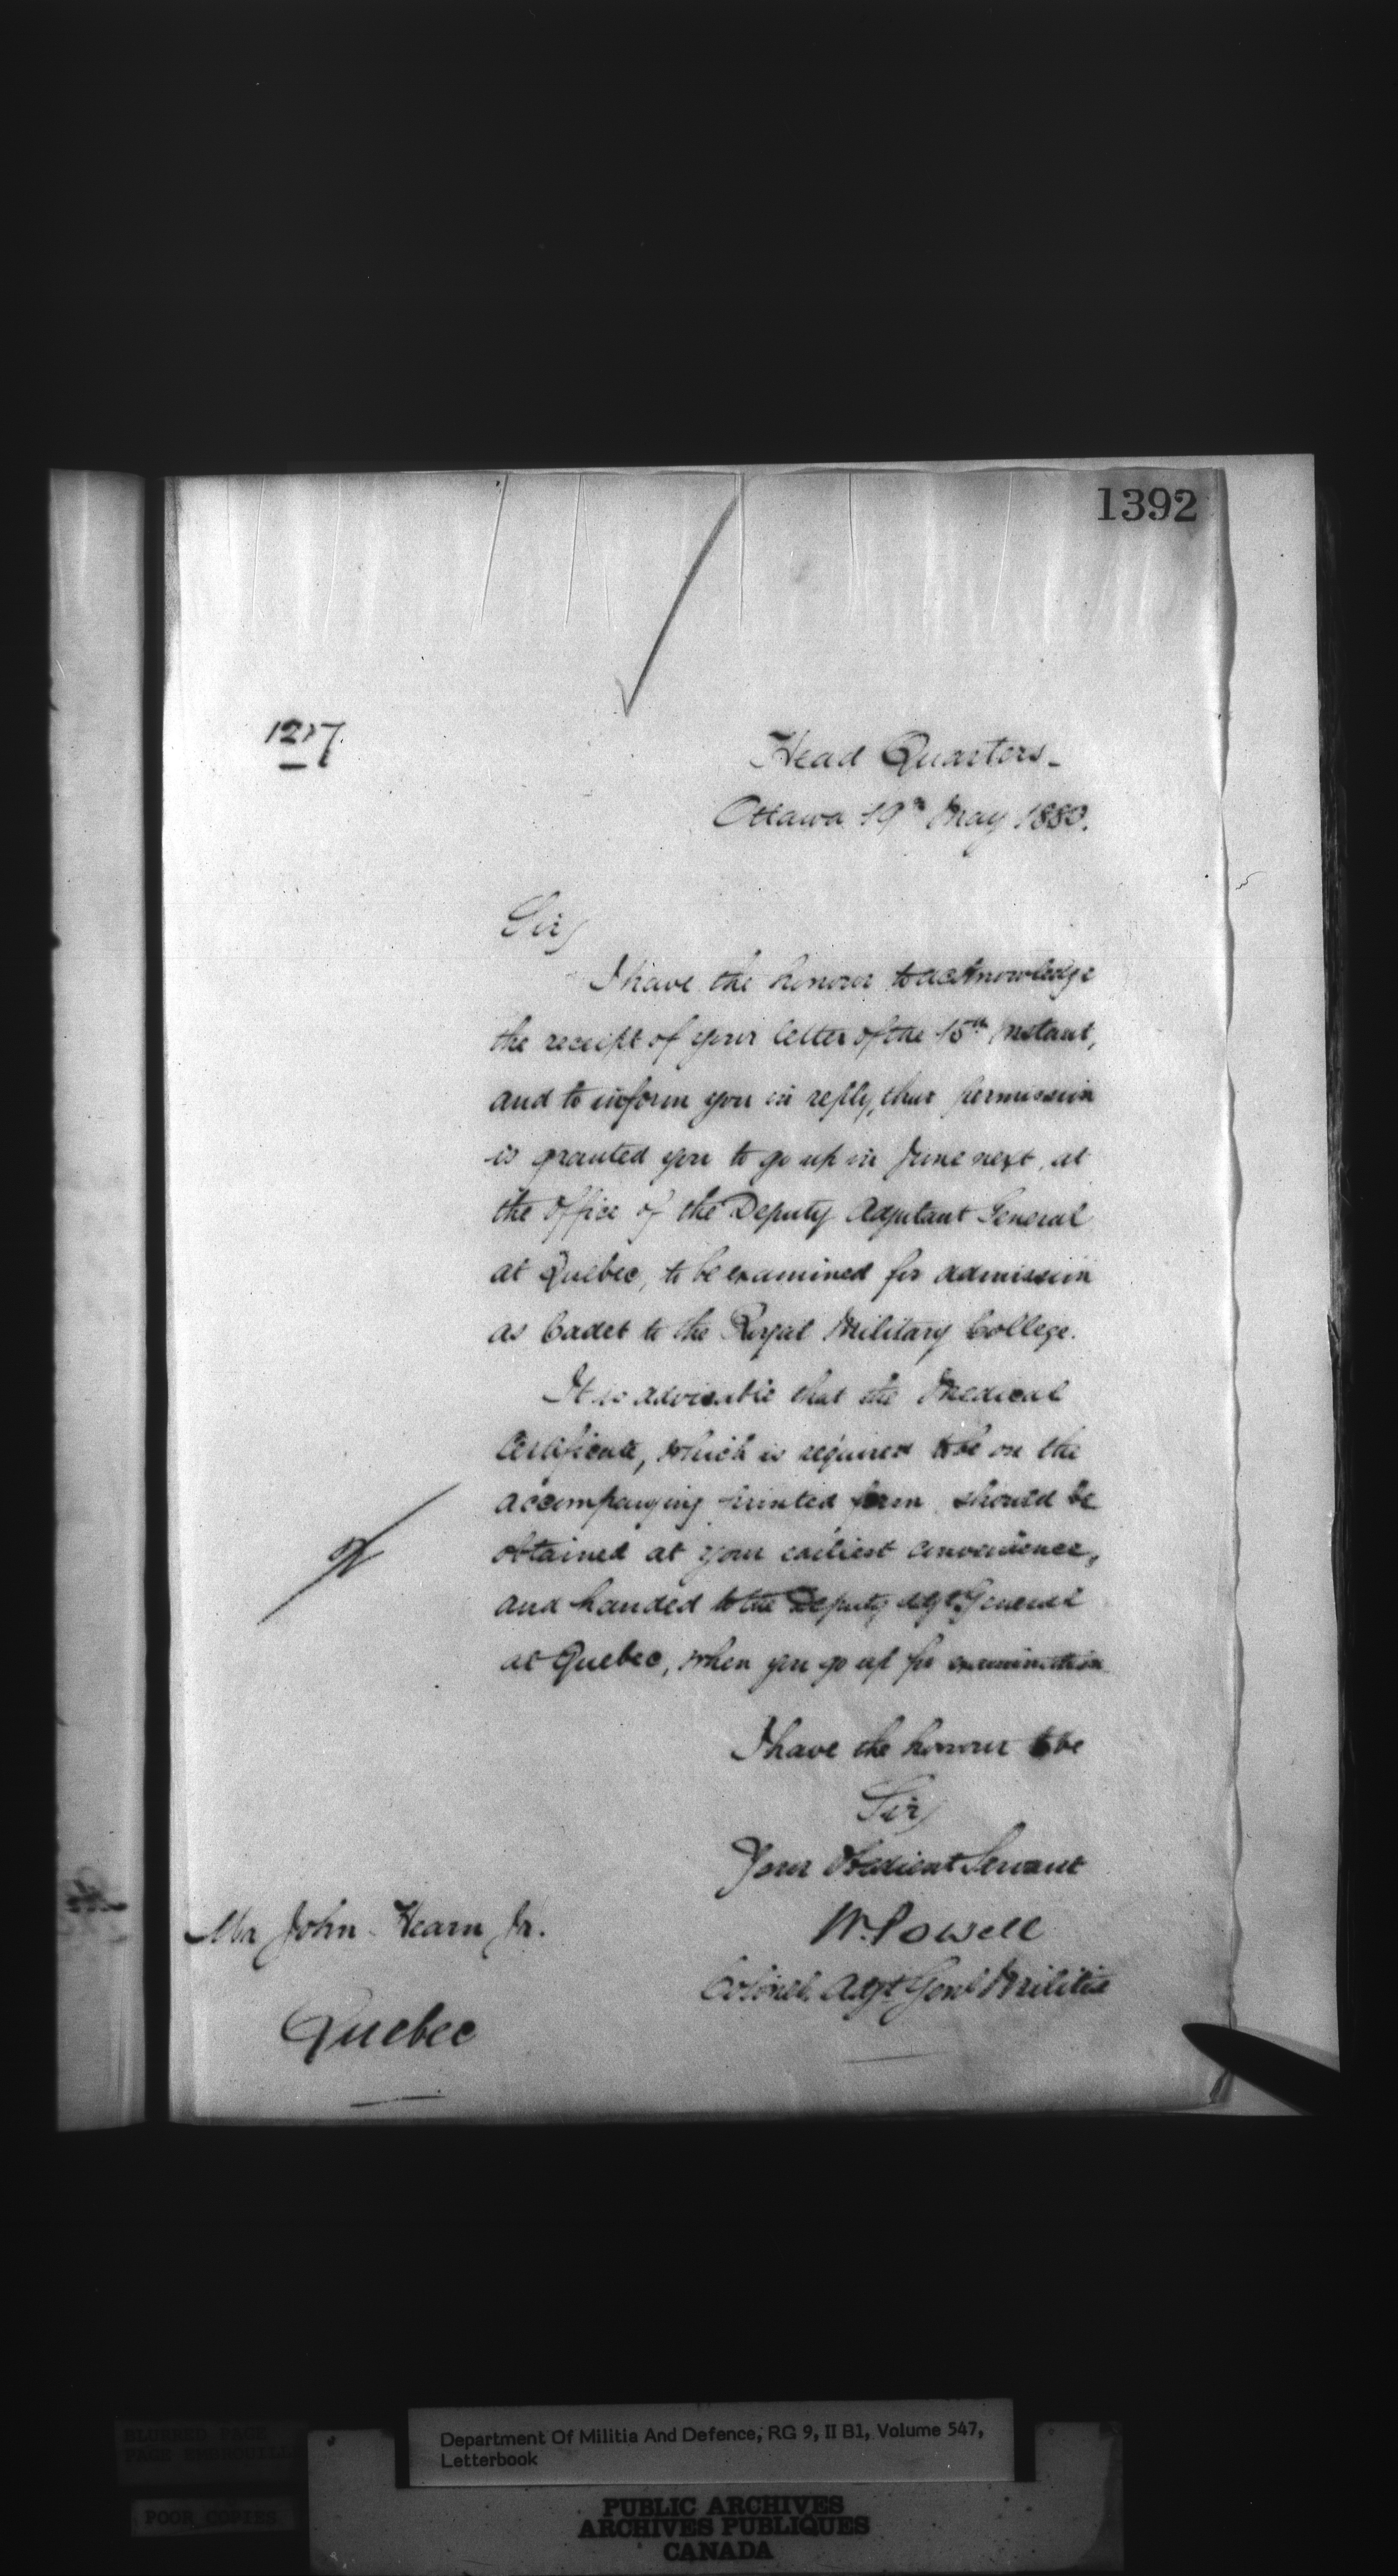 1392
Head Quarters
Ottawa 19th May 1880.
Sir,
I have the honour to acknowledge
the receipt of your letter of the 15th Instant,
and to inform you in reply, that permission
is granted you to go up in June next, at
the Office of the Deputy Adjutant General
at Quebec, to be examined for admission
as Cadet to the Royal Military College.
It is advisable that the Medical
Certificate, which is required to be on the
accompanying printed form should be
obtained at your earliest convenience,
and handed to the Deputy Adjt General
at Quebec, when you go up for examination
I have the honour to be
Sir,
Your Obedient Servant
W. Powell
Colonel. Adjt Genl Militia
Mr John Hearn Jr.
Quebec
Department Of Militia And Defence, RG 9, II B1, Volume 547,
Letterbook
BLURRED PAGE
POOR COPIES
PUBLIC ARCHIVES
ARCHIVES PUBLIQUES
CANADA